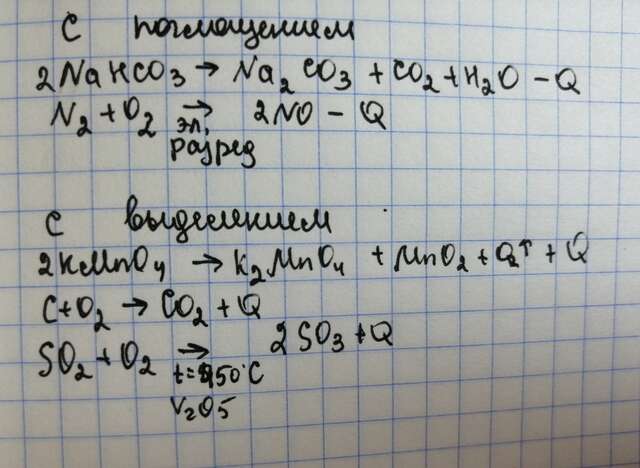 с поглощением
2NaHCO₃ → Na₂CO₃ + CO₂ + H₂O - Q
N₂ + O₂ → 2NO - Q
эл. разряд
с выделением
2KMnO₄ → K₂MnO₄ + MnO₂ + O₂↑ + Q
C + O₂ → CO₂ + Q
SO₂ + O₂ → 2SO₃ + Q
t = 450°C
V₂O₅